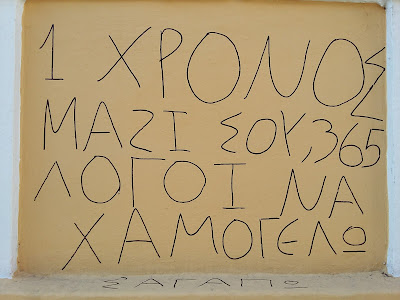 1 ΧΡΟΝΟΣ
ΜΑΖΙ ΣΟΥ, 365
ΛΟΓΟΙ ΝΑ
ΧΑΜΟΓΕΛΩ
Σ'ΑΓΑΠΩ